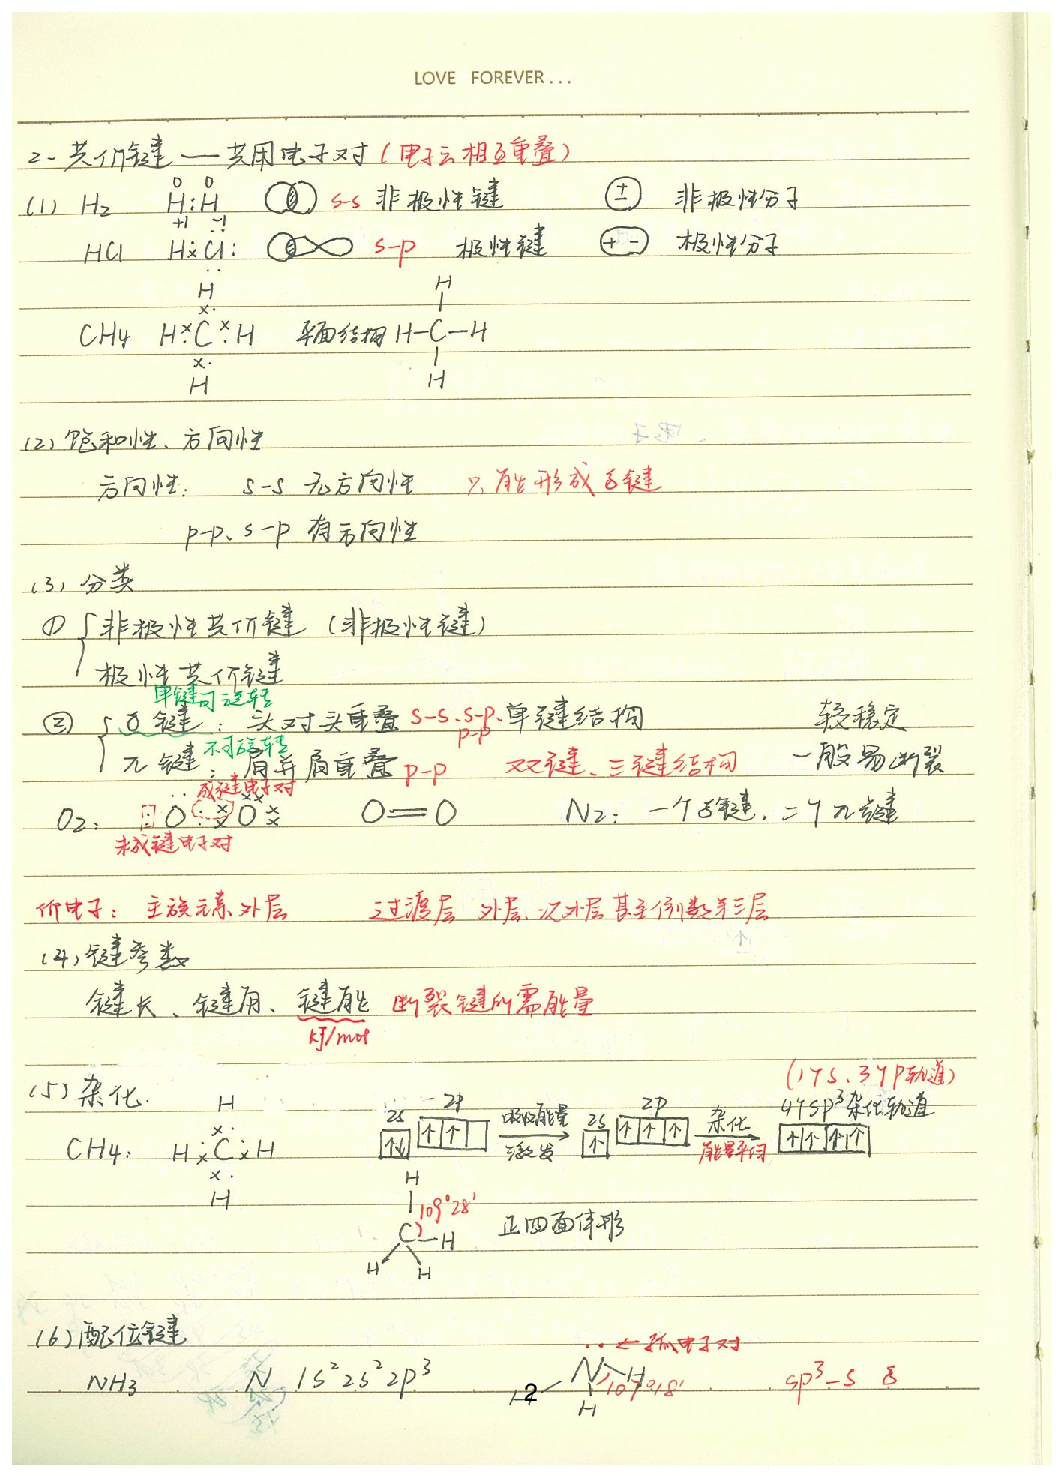 LOVE FOREVER...
2. 共价键 — 共用电子对 (电子云相互重叠)
(1) H₂ H:H s-s 非极性键 ± 非极性分子
0 0
+1 -1
HCl H×Cl: s-p 极性键 + - 极性分子
CH4 H C H H H 平面结构 H-C-H H H
(2) 饱和性、方向性
方向性: s-s 无方向性 只能形成δ键
p-p、s-p 有方向性
(3) 分类
① { 非极性共价键 (非极性键)
极性共价键
单键可旋转
② { δ键: 头对头重叠 s-s、s-p、p-p 单键结构 较稳定
不可旋转
π键: 肩并肩重叠 p-p 双键、三键结构 一般易断裂
成键电子对
O₂: O O O=O N₂: 一个δ键, 二个π键
未成键电子对
价电子: 主族元素外层 过渡层 外层、次外层甚至倒数第三层
(4) 键参数
键长、键角、键能 断裂键所需能量
kJ/mol
(1个s、3个p轨道)
(5) 杂化. 4个sp³杂化轨道
CH4: H C H H H 2s 2p 吸收能量 激发 2s 2p 杂化 能量平均
H C H H H 109°28' 正四面体形
(6) 配位键 ←孤电子对
NH3 N 1s²2s²2p³ N H H 107°18' sp³-s δ
2